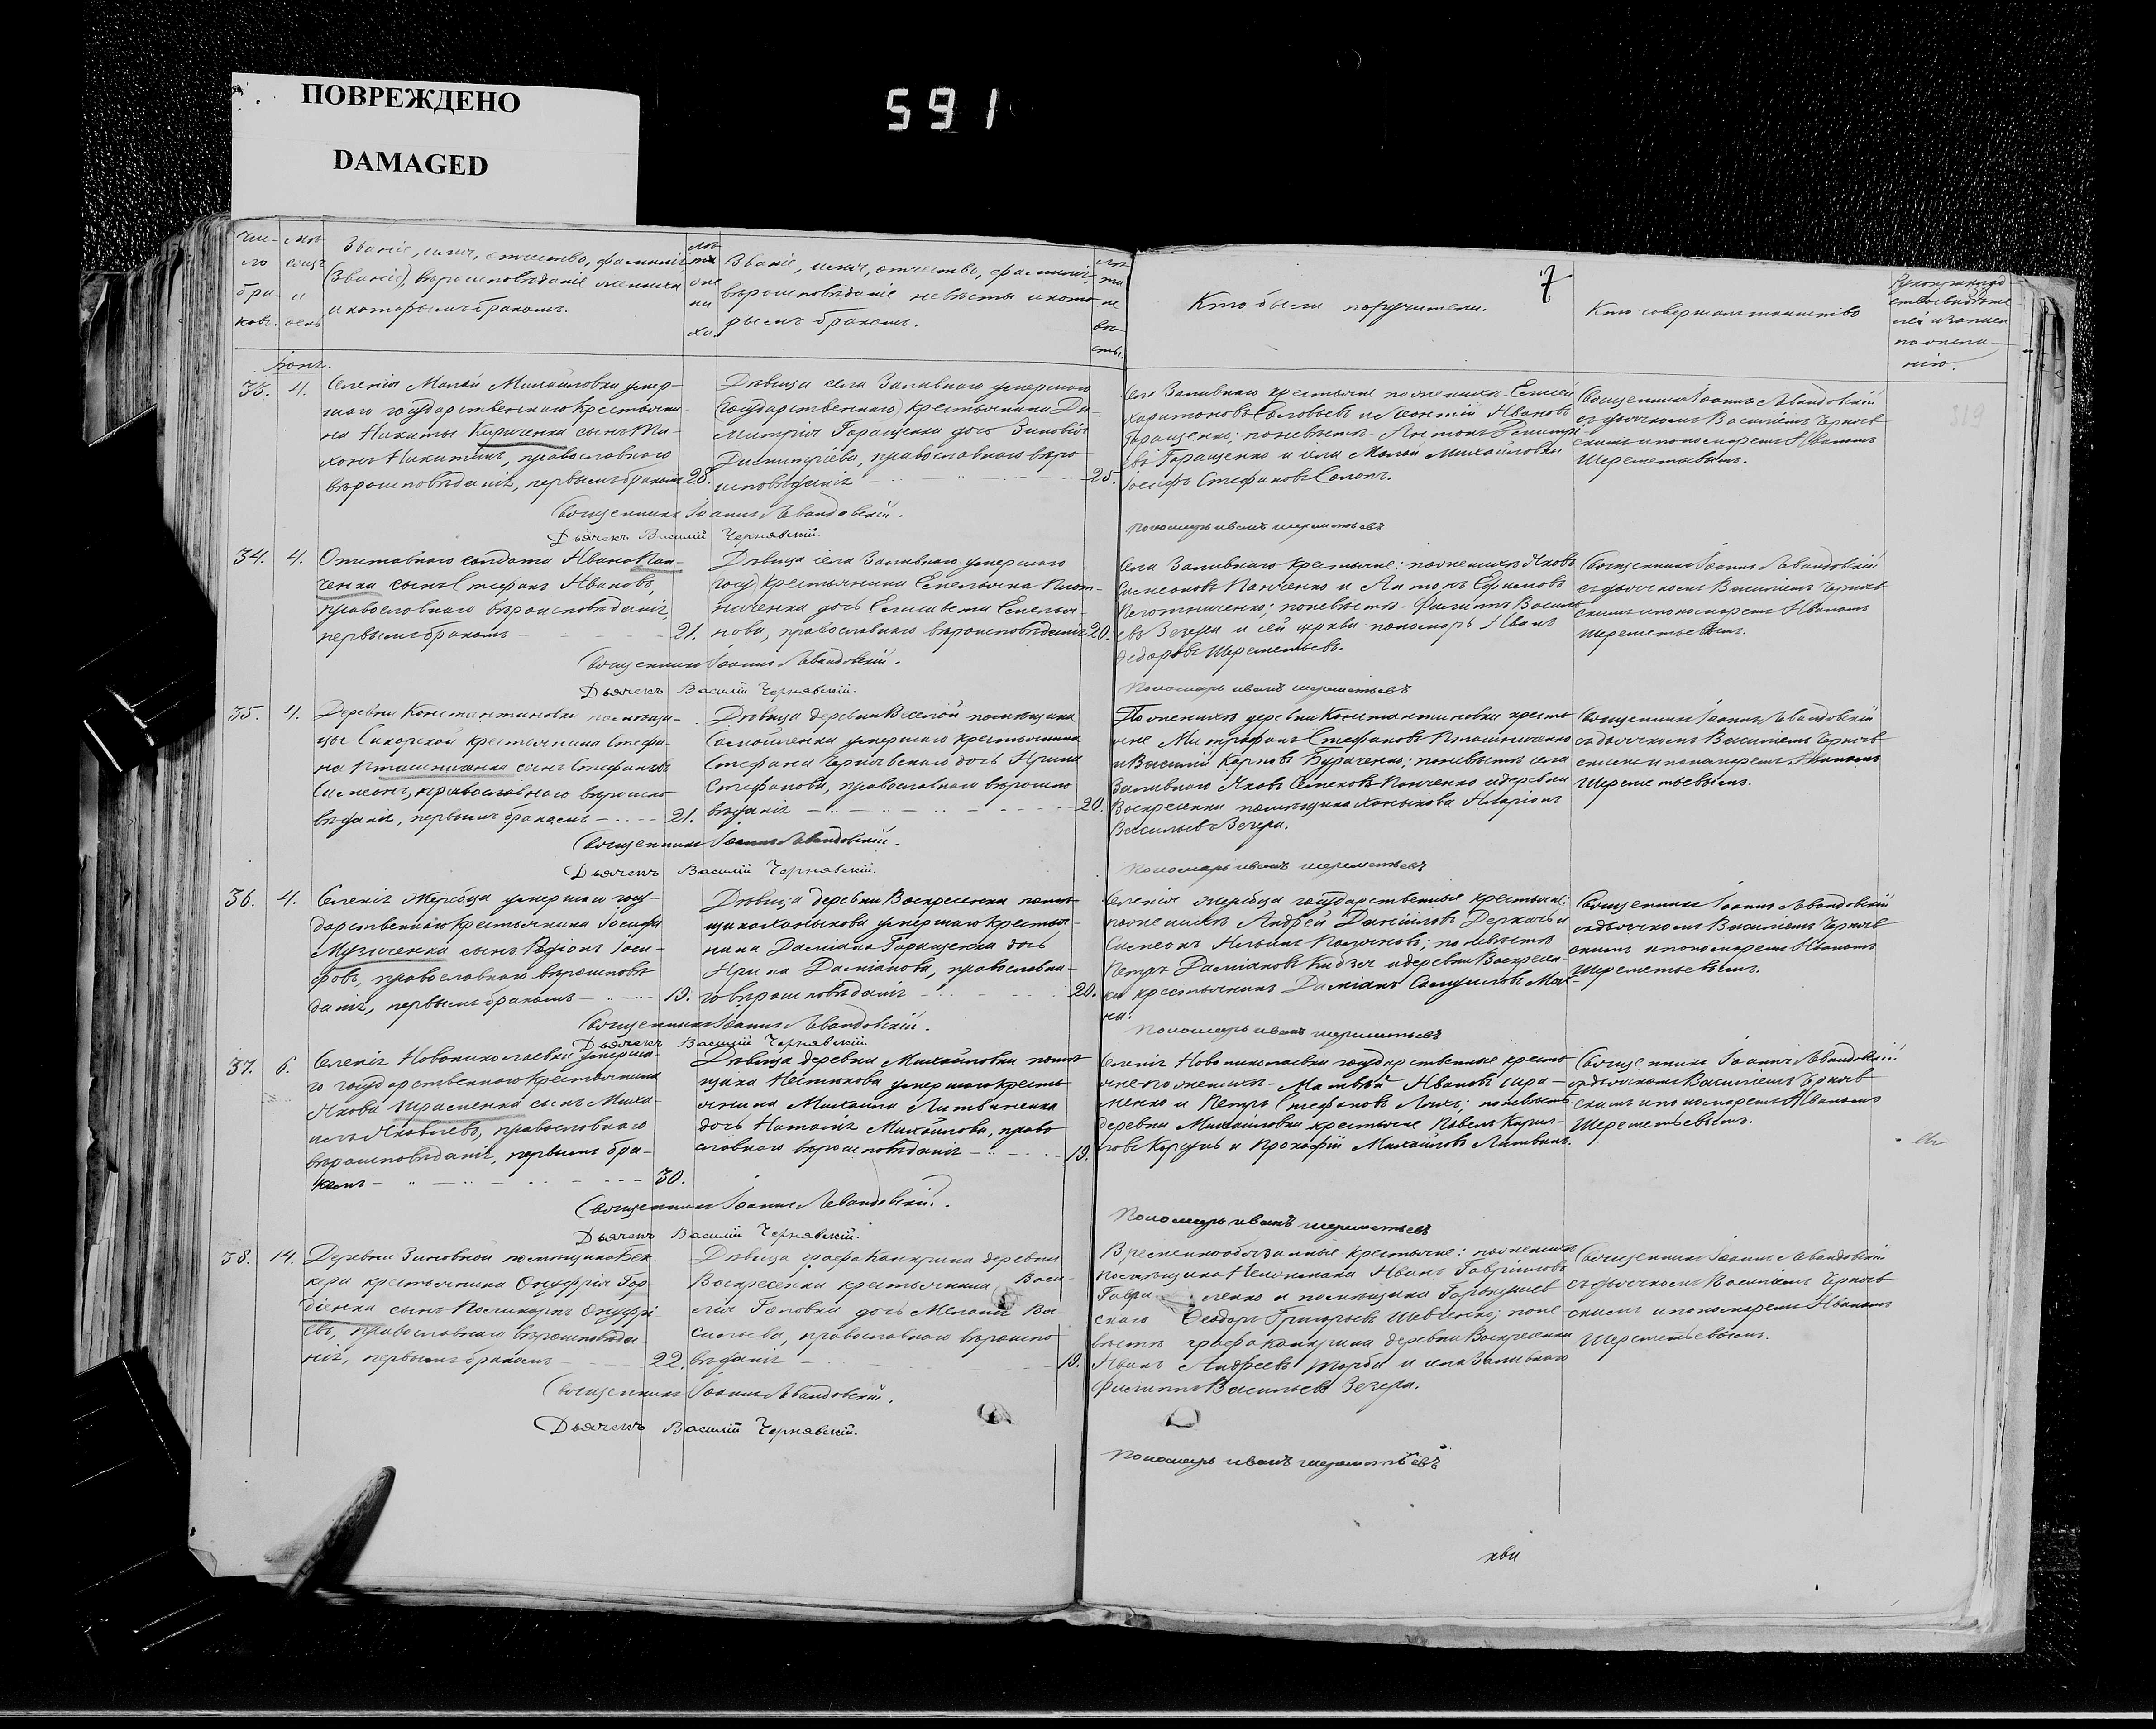 ПОВРЕЖДЕНО
DAMAGED
591
7
Чи-
сло
бра-
ковъ.
Званіе, имя, отчество, фамилія
(Званіе) вѣроисповѣданіе жениха
и которымъ бракомъ.
Званіе, имя, отчество, фамилія,
вѣроисповѣданіе невѣсты и кото
рымъ бракомъ.
Кто были поручители.
Кто совершалъ таинство
33. 4.
Селенія Малой Михайловки умер-
шаго государственнаго крестьяни-
на Никиты Кириченка сынъ Ти-
хонъ Никитинъ, православнаго
вѣроисповѣданія, первымъ бракомъ 28.
Дѣвица села Заливнаго умершаго
государственнаго крестьянина Ди-
митрія Геращенка дочь Зиновія
Димитріева, православнаго вѣро
исповѣданія 25.
Села Заливнаго крестьяне по женихѣ Елисей
Харитоновъ Соловьевъ и Леонтій Ивановъ
Геращенко; по невѣстѣ Антонъ Димитрі-
евъ Геращенко и села Малой Михайловки
Іосифъ Стефановъ
Священникъ Іоаннъ Левандовскій
съ дьячкомъ Василіемъ Черняв
скимъ и пономаремъ Иваномъ
Шереметьевымъ.
Священникъ Іоаннъ Левандовскій.
Дьячекъ Василій Чернявскій.
Пономарь иванъ шереметьевъ
34. 4.
Отставнаго солдата Ивана Пан-
ченка сынъ Стефанъ Ивановъ,
православнаго вѣроисповѣданія,
первымъ бракомъ 21.
Дѣвица села Заливнаго умершаго
госуд. крестьянина Емельяна Плот-
ниченка дочь Елисавета Емелья-
нова, православнаго вѣроисповѣданія 20.
Села Заливнаго крестьяне: по женихѣ Яковъ
Симеоновъ Панченко и Антонъ Ефимовъ
Плотниченко; по невѣстѣ - Филиппъ Василь-
евъ Вечеря и сей церкви пономарь Иванъ
Федоровъ Шереметьевъ.
Священникъ Іоаннъ Левандовскій
съ дьячкомъ Василіемъ Черняв
скимъ и пономаремъ Иваномъ
Шереметьевымъ.
Священникъ Іоаннъ Левандовскій.
Дьячекъ Василій Чернявскій.
Пономарь иванъ шереметьевъ
35. 4.
Деревни Константиновки помѣщи-
цы Сикорской крестьянина Стефа-
на Пташниченка сынъ Стефановъ
Симеонъ, православнаго вѣроиспо
вѣданія, первымъ бракомъ 21.
Дѣвица деревни Веселой помѣщика
Самойленка умершаго крестьянина
Стефана Чернявскаго дочь Ирина
Стефанова, православнаго вѣроиспо
вѣданія 20.
По женихѣ деревни Константиновки кресть
яне Митрофанъ Стефановъ Пташниченко
и Василій Карповъ Бураченко; по невѣстѣ села
Заливнаго Яковъ Семеновъ Панченко и деревни
Воскресенки помѣщика Ханыкова Иларіонъ
Васильевъ Вечеря.
Священникъ Іоаннъ Левандовскій
съ дьячкомъ Василіемъ Черняв
скимъ и пономаремъ Иваномъ
Шереметьевымъ.
Священникъ Іоаннъ Левандовскій.
Дьячекъ Василій Чернявскій.
Пономарь иванъ шереметьевъ
36. 4.
Селенія Жеребца умершаго госу-
дарственнаго крестьянина Іосифа
Музыченка сынъ Родіонъ Іоси-
фовъ, православнаго вѣроисповѣ
данія, первымъ бракомъ 19.
Дѣвица деревни Воскресенки помѣ-
щика Ханыкова умершаго крестья-
нина Даміана Геращенка дочь
Ирина Даміанова, православна-
го вѣроисповѣданія 20.
Селенія Жеребца государственные крестьяне:
по женихѣ Андрей Даніиловъ Деркачъ и
Симеонъ Ильинъ; по невѣстѣ
Петръ Даміановъ и деревни Воскресен-
ки крестьянинъ Даміанъ Самуиловъ
Священникъ Іоаннъ Левандовскій
съ дьячкомъ Василіемъ Черняв
скимъ и пономаремъ Иваномъ
Шереметьевымъ.
Священникъ Іоаннъ Левандовскій.
Дьячекъ Василій Чернявскій.
Пономарь иванъ шереметьевъ
37. 6.
Селенія Новониколаевки умерша-
го государственнаго крестьянина
Якова сынъ Миха-
илъ Яковлевъ, православнаго
вѣроисповѣданія, первымъ бра-
комъ 30.
Дѣвица деревни Михайловки помѣ
щика умершаго кресть
янина Михаила Литвиненка
дочь Наталія Михайлова, право
славнаго вѣроисповѣданія 19.
Селенія Новониколаевки государственные кресть
яне по женихѣ - Матвѣй Ивановъ
и Петръ Стефановъ; по невѣстѣ
деревни Михайловки крестьяне Павелъ Кирил-
ловъ Коргунъ и Прокофій Михайловъ Литвинъ.
Священникъ Іоаннъ Левандовскій
съ дьячкомъ Василіемъ Черняв
скимъ и пономаремъ Иваномъ
Шереметьевымъ.
Священникъ Іоаннъ Левандовскій.
Дьячекъ Василій Чернявскій.
Пономарь иванъ шереметьевъ
38. 14.
Деревни помѣщика Бек
кера крестьянина Онуфрія Гор
діенка сынъ Поликарпъ Онуфрі
евъ, православнаго вѣроисповѣда-
нія, первымъ бракомъ 22.
Дѣвица графа Канкрина деревни
Воскресенки крестьянина Васи-
лія Головки дочь Меланія Ва-
сильева, православнаго вѣроиспо
вѣданія 19.
Временнообязанные крестьяне: по женихѣ
помѣщика Иванъ Гавріиловъ
и помѣщика
скаго Феодоръ Григорьевъ Шевченко; по не
вѣстѣ графа Канкрина деревни Воскресенки
Иванъ Андреевъ Торба и села Заливнаго
Филиппъ Васильевъ Вечеря.
Священникъ Іоаннъ Левандовскій
съ дьячкомъ Василіемъ Черняв
скимъ и пономаремъ Иваномъ
Шереметьевымъ.
Священникъ Іоаннъ Левандовскій.
Дьячекъ Василій Чернявскій.
Пономарь иванъ шереметьевъ